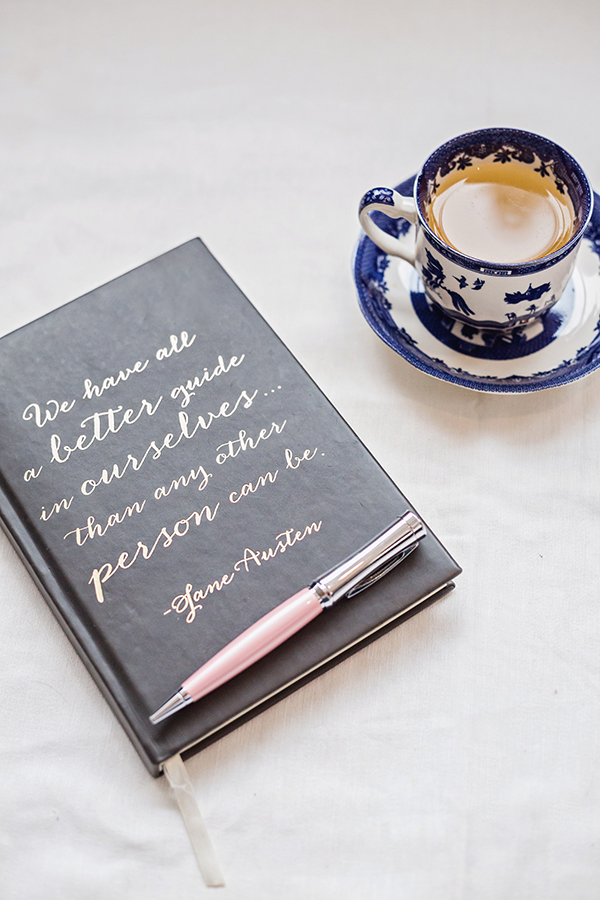 We have all
a better guide
in ourselves...
than any other
person can be.
-Jane Austen